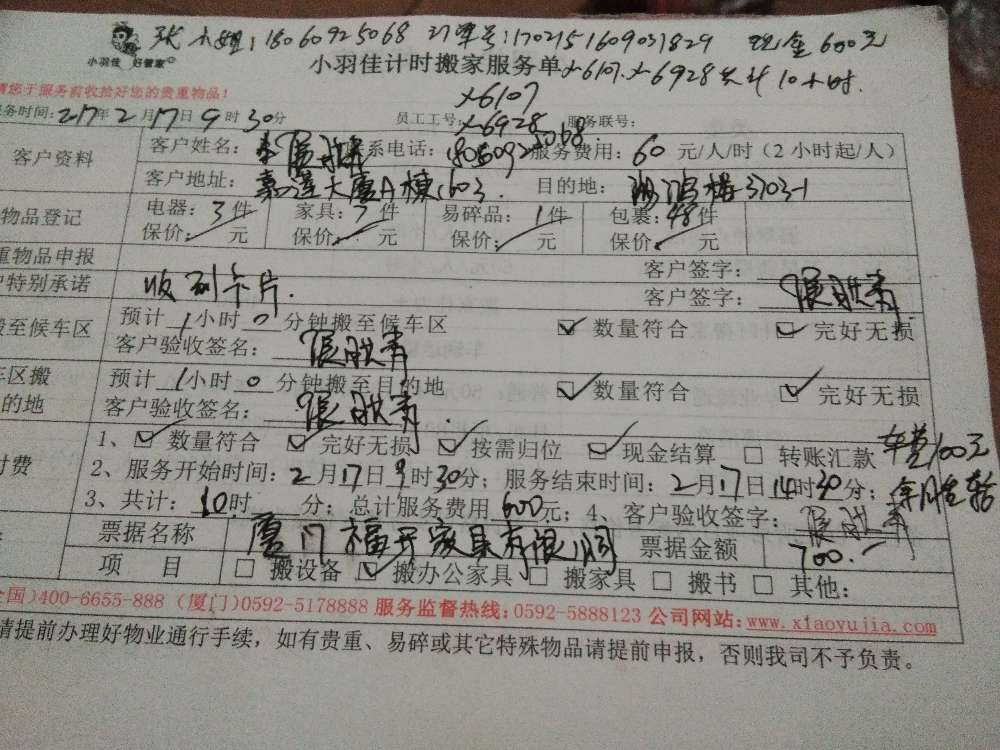 张小姐:18060925068 订单号:1702151609031829 现金600元
小羽佳 好管家 小羽佳计时搬家服务单 X-6107.X-6928共计10小时.
请您于服务前收拾好您的贵重物品!
X-6107
服务时间:217年2月17日9时30分 员工工号:X-6928 服务联号:
客户资料 客户姓名: 联系电话:18060925068 服务费用:60元/人/时(2小时起/人)
客户地址:嘉莲大厦A栋1603 目的地: 3703-1
物品登记 电器:3件 家具:7件 易碎品:1件 包裹:48件
保价: 元 保价: 元 保价: 元 保价: 元
重物品申报 客户签字:
特别承诺 收到卡片. 客户签字:张胜青
搬至候车区 预计1小时0分钟搬至候车区 ☑数量符合 ☑完好无损
客户验收签名:张胜青
车区搬 预计1小时0分钟搬至目的地 ☑数量符合 ☑完好无损
的地 客户验收签名:张胜青
1、☑数量符合 ☑完好无损 ☑按需归位 ☑现金结算 □转账汇款 车费100元
付费 2、服务开始时间:2月17日9时30分;服务结束时间:2月17日14时30分;
3、共计:10时 分;总计服务费用600元;4、客户验收签字:张胜青
票据名称 厦门福开家具有限公司 票据金额 700.-
项 目 □搬设备 ☑搬办公家具 □搬家具 □搬书 □其他:
全国)400-6655-888 (厦门)0592-5178888 服务监督热线:0592-5888123 公司网站:www.xiaoyujia.com
请提前办理好物业通行手续,如有贵重、易碎或其它特殊物品请提前申报,否则我司不予负责。